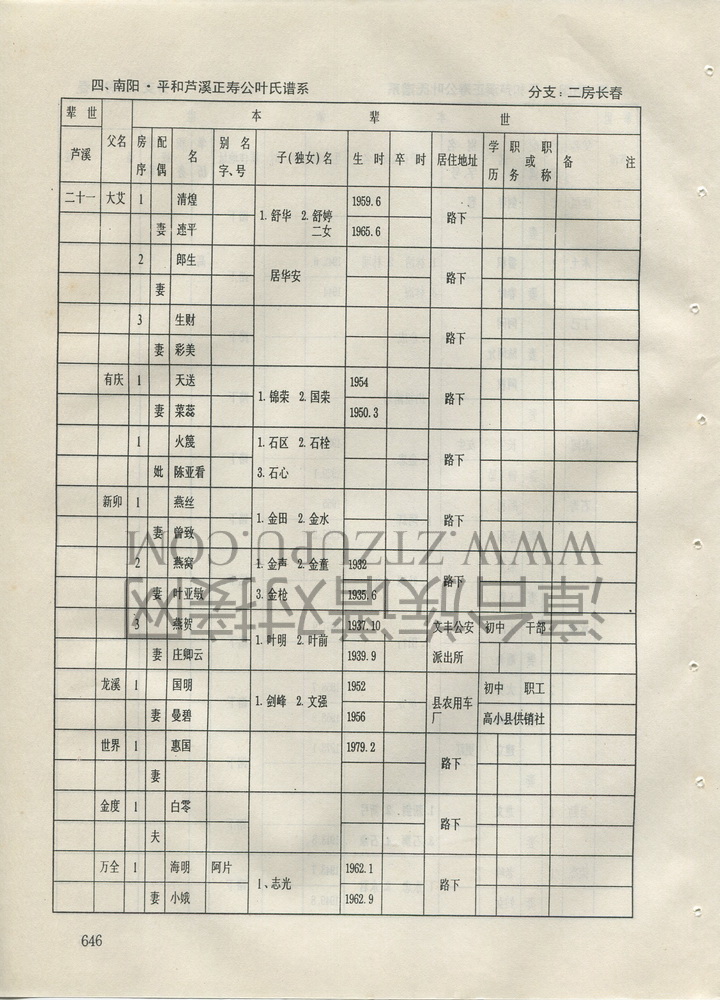 四、南阳·平和芦溪正寿公叶氏谱系 分支：二房长春
辈世 本 辈 世
芦溪 父名 房序 配偶 名 别名字、号 子(独女)名 生时 卒时 居住地址 学历 职务或职称 备注
二十一 大艾 1 清煌 1.舒华 2.舒婷 1959.6 路下
妻 速平 二女 1965.6
2 郎生 居华安 路下
妻
3 生财 路下
妻 彩美
有庆 1 天送 1.锦荣 2.国荣 1954 路下
妻 菜蕊 1950.3
1 火篾 1.石区 2.石栓 路下
妣 陈亚看 3.石心
新卯 1 燕丝 1.金田 2.金水 路下
妻 曾致
2 燕窝 1.金声 2.金童 1932 路下
妻 叶亚敏 3.金枪 1935.6
3 燕贺 1.叶明 2.叶前 1937.10 文丰公安 初中 干部
妻 庄卿云 1939.9 派出所
龙溪 1 国明 1.剑峰 2.文强 1952 县农用车厂 初中 职工
妻 曼碧 1956 高小 县供销社
世界 1 惠国 1979.2 路下
妻
金度 1 白零 路下
夫
万全 1 海明 阿片 1、志光 1962.1 路下
妻 小娥 1962.9
646
WWW.ZTZUPU.COM
漳台族谱对接网